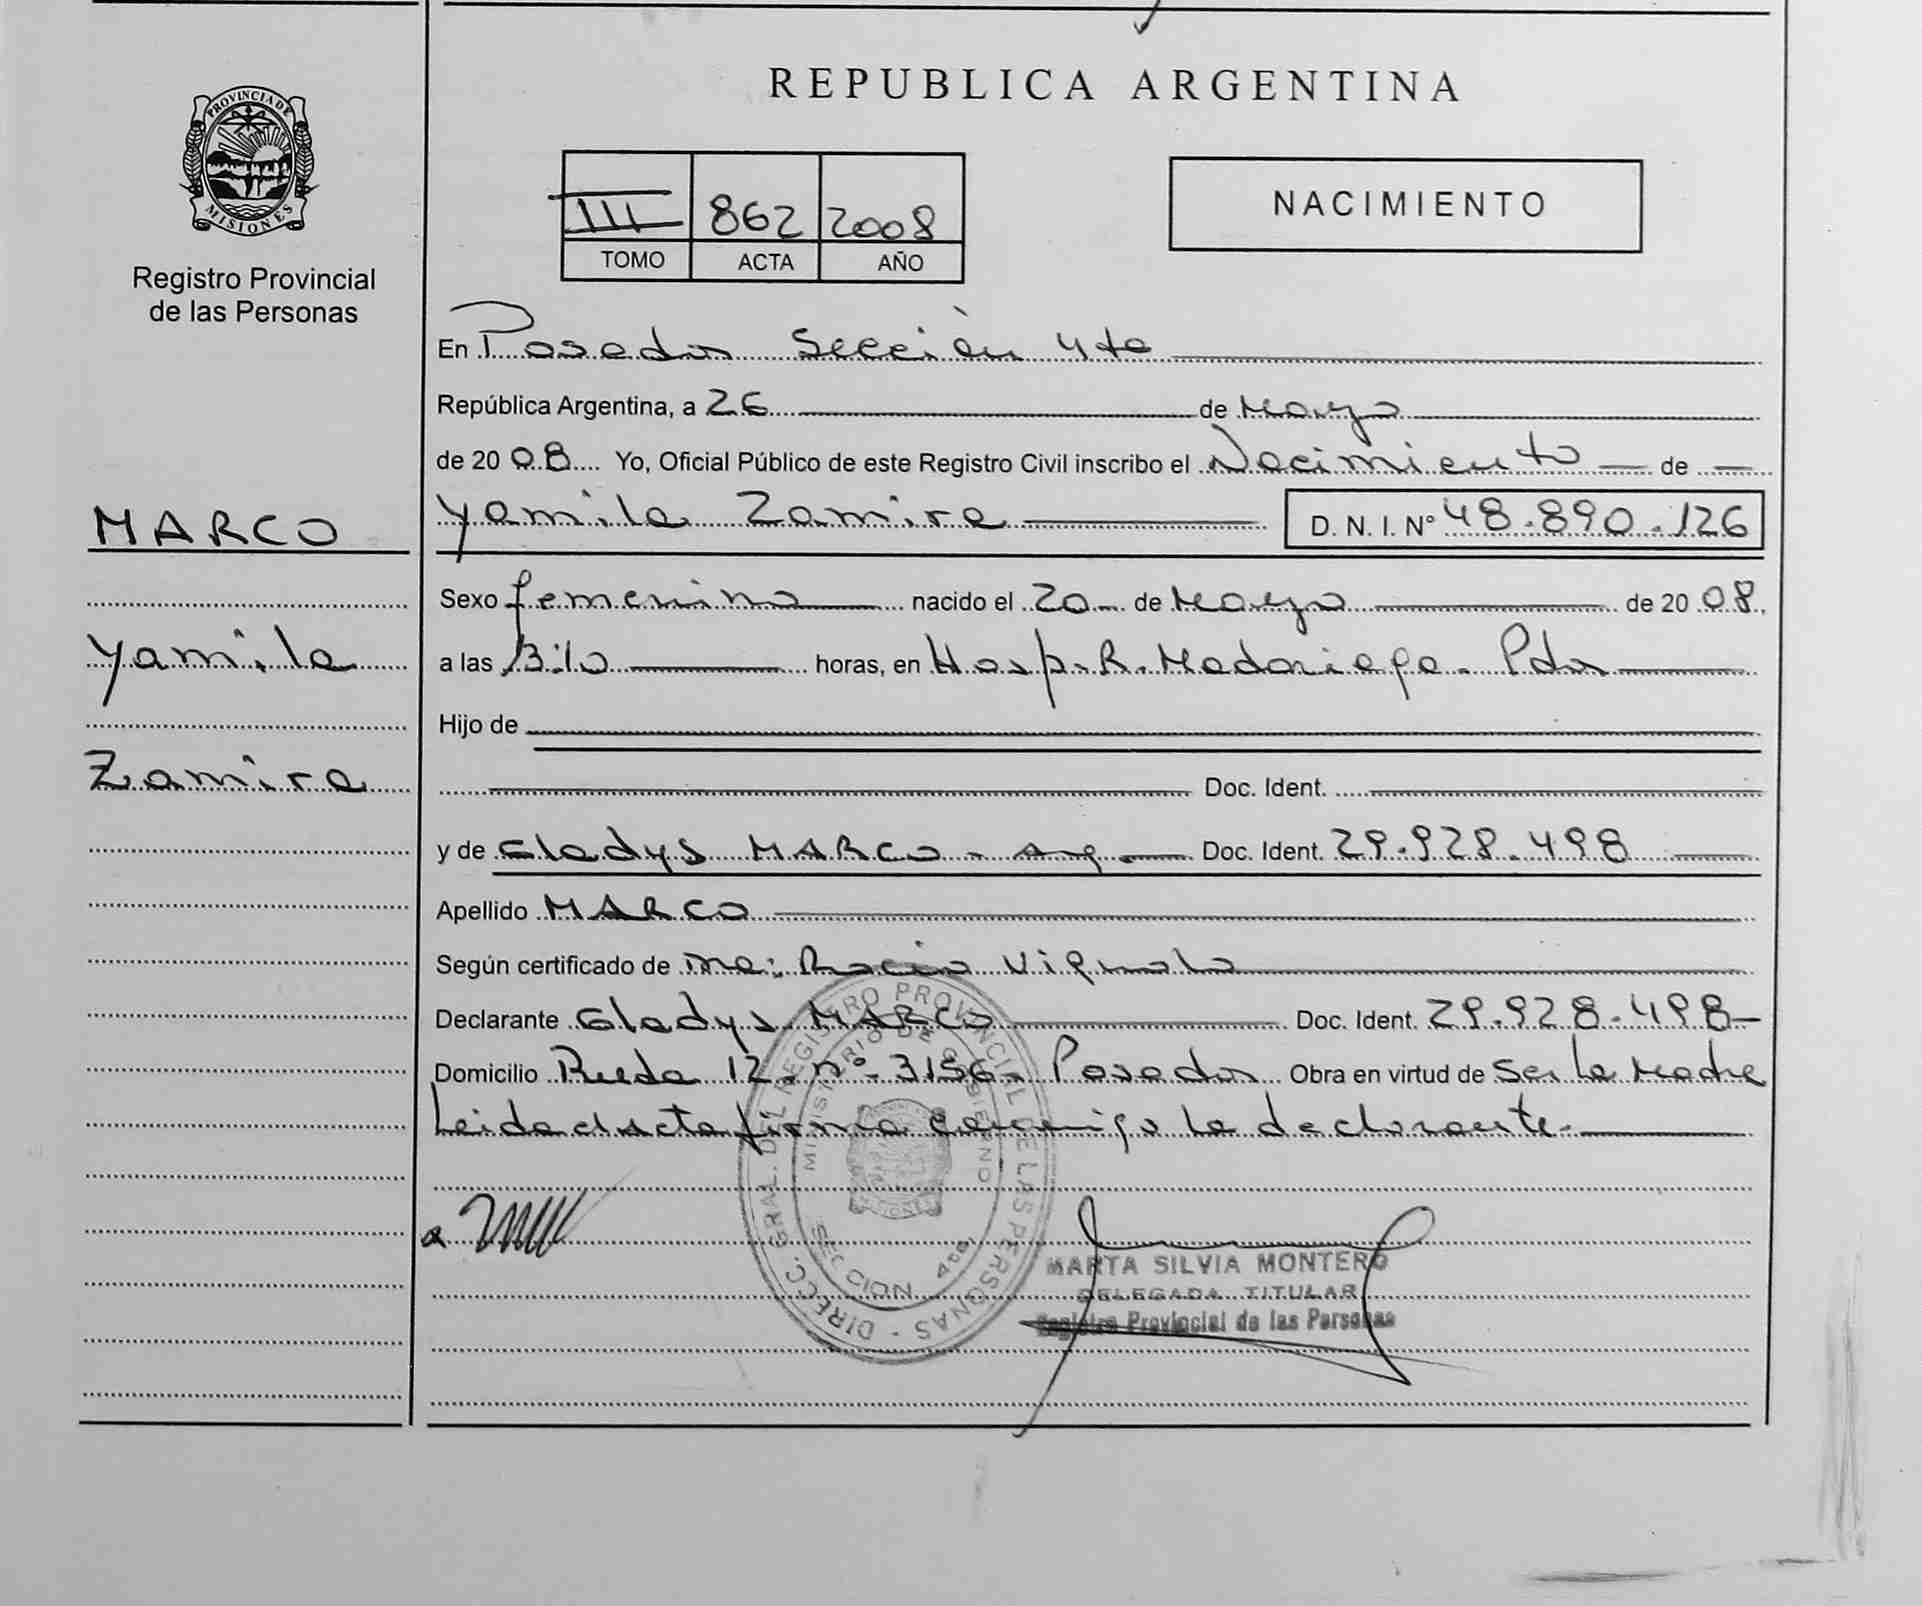 REPUBLICA ARGENTINA
PROVINCIA DE MISIONES
Registro Provincial
de las Personas
III 862 2008
TOMO ACTA AÑO
NACIMIENTO
En Posadas Sección 4ta
República Argentina, a 26 de Mayo
de 2008 Yo, Oficial Público de este Registro Civil inscribo el Nacimiento de
MARCO
Yamila Zamira D. N. I. N° 48.890.126
Sexo femenino nacido el 20 de Mayo de 2008
Yamila
a las 13:10 horas, en Hosp. R. Madariaga. Pdas
Hijo de
Zamira
Doc. Ident.
y de Gladys MARCO - Arg Doc. Ident. 29.928.498
Apellido MARCO
Según certificado de Rocío Vignolo
Declarante Gladys MARCO Doc. Ident. 29.928.498
Domicilio 12 n° 3156 Posadas Obra en virtud de Ser la Madre
Leida el acta firma conmigo la declarante.
DIRECC. GRAL. DEL REGISTRO PROVINCIAL DE LAS PERSONAS
MINISTERIO DE GOBIERNO
SECCION 4ta
MARTA SILVIA MONTERO
DELEGADA TITULAR
Registro Provincial de las Personas